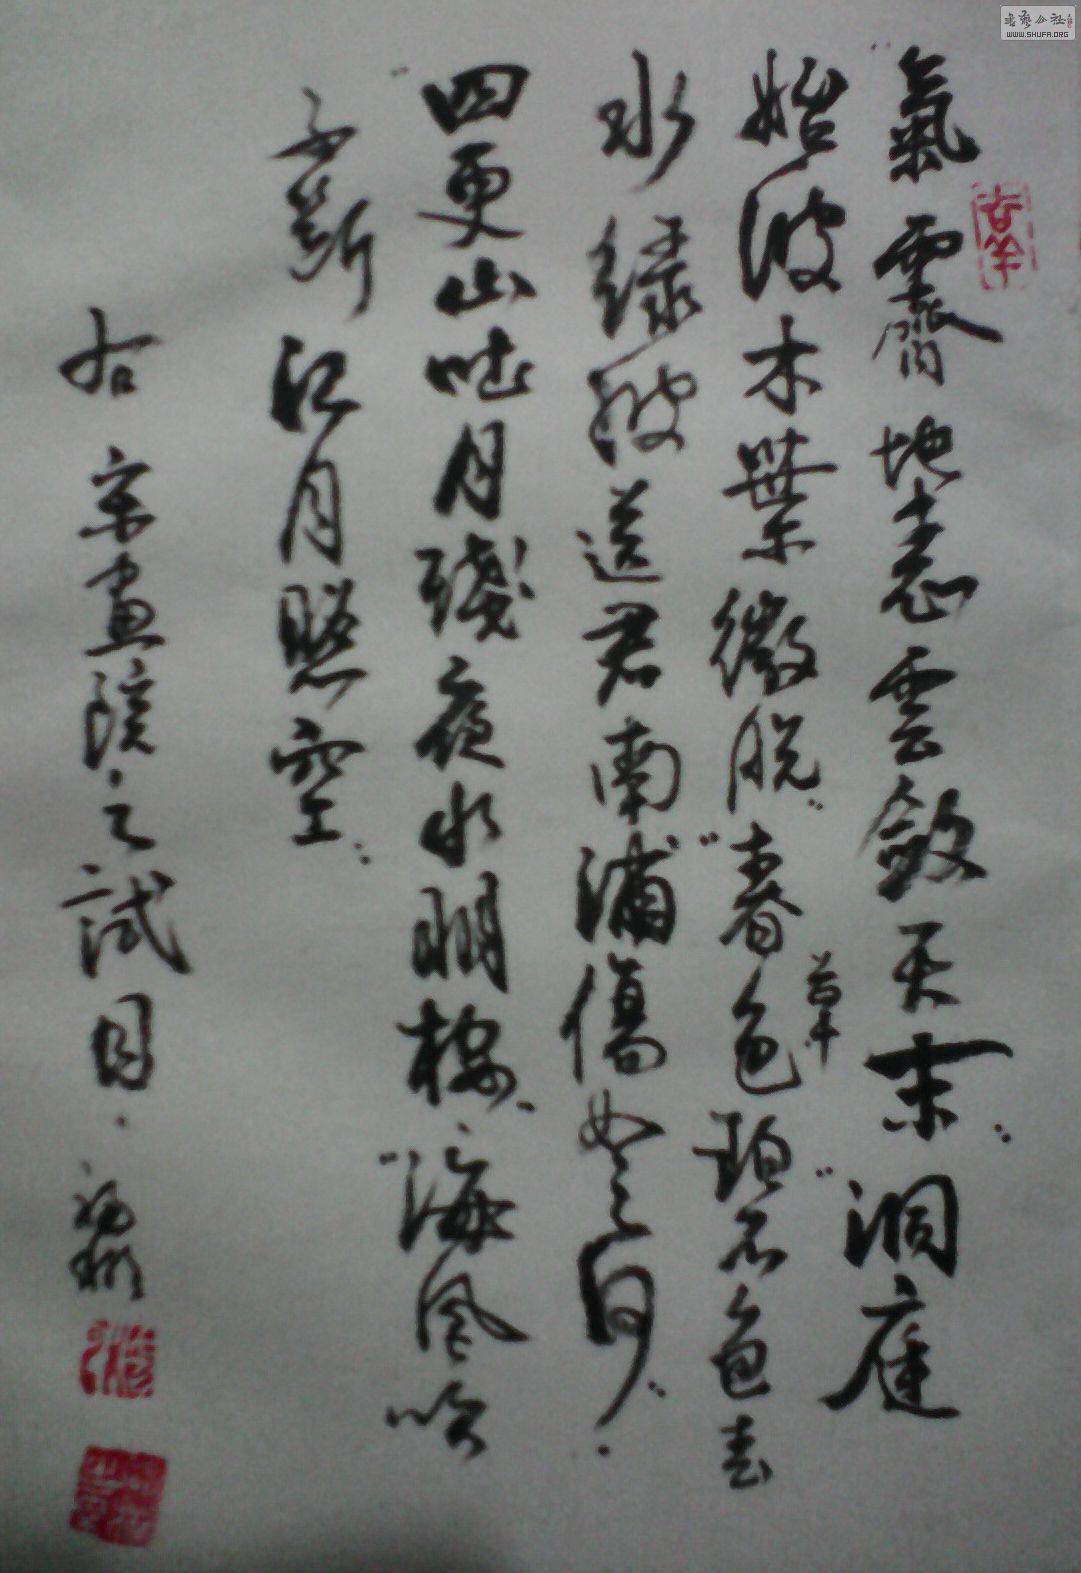 "氣霽地表雲斂天末" "洞庭
始波木葉微脱" "春色草碧色春
水綠波送君南浦傷如之何"
"四更山吐月殘夜水明樓" "海風吹
不斷江月照空"
右宋畫院之試目
書藝公社
WWW.SHUFA.ORG